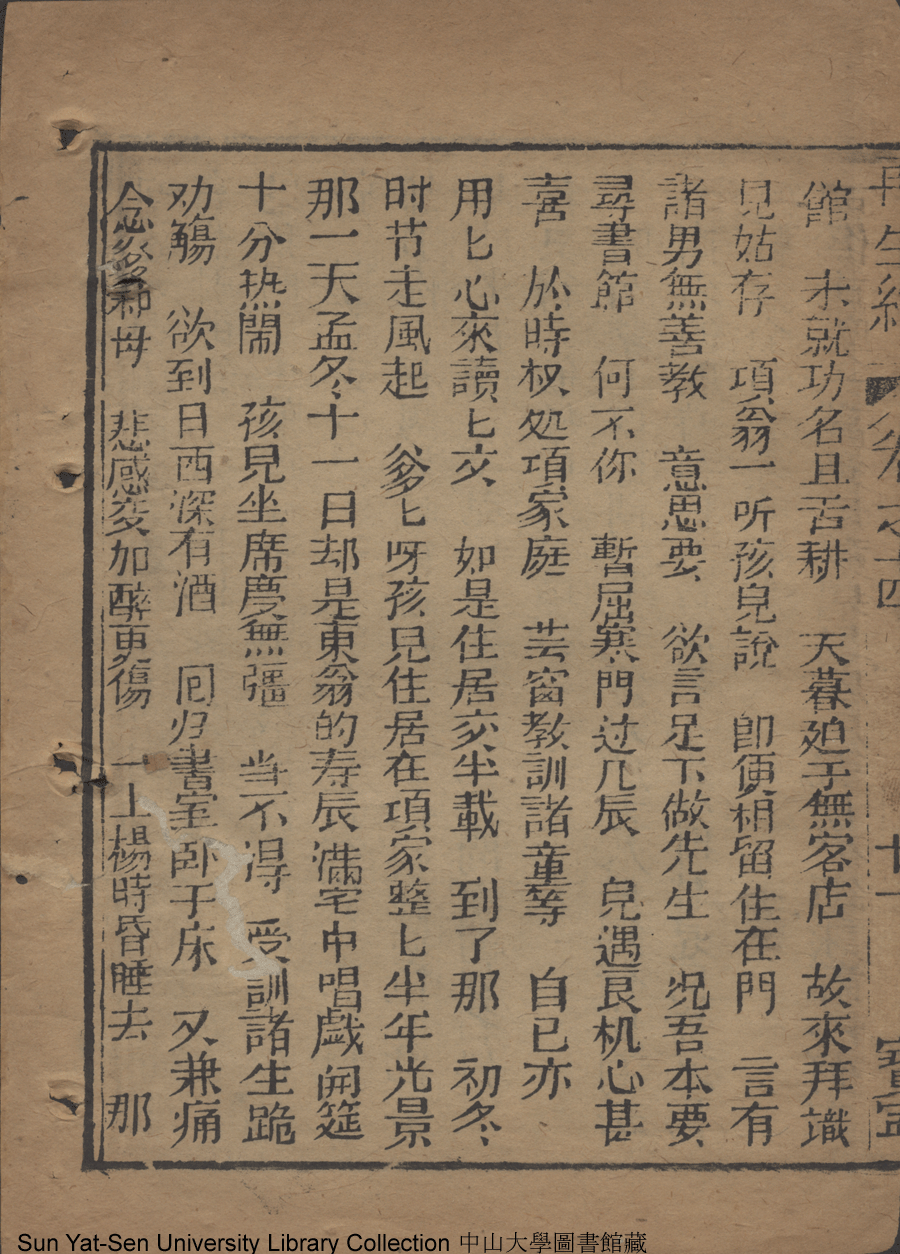 再生緣 卷之十四 七十 寶寧
館　未就功名且舌耕　天暮廹于無客店　故來拜識
見姑存　項翁一听孩兒說　卽便相留住在門　言有
諸男無善教　意思要　欲言足下做先生　况吾本要
尋書館　何不你　暫屈寒門过几辰　兒遇良机心甚
喜　於時权处項家庭　芸窗教訓諸童等　自已亦
用匕心來讀匕文　如是住居亥半載　到了那　初冬
时节走風起　爹匕呀孩兒住居在項家整匕半年光景
那一天孟冬十一日却是東翁的寿辰滿宅中唱戯開筵
十分热鬧　孩兒坐席慶無疆　当不淂　受訓諸生跪
劝觴　欲到日西深有酒　回归書室卧于床　又兼痛
念爹和母　悲感交加醉更傷　一上榻時昏睡去　那
Sun Yat-Sen University Library Collection 中山大學圖書館藏